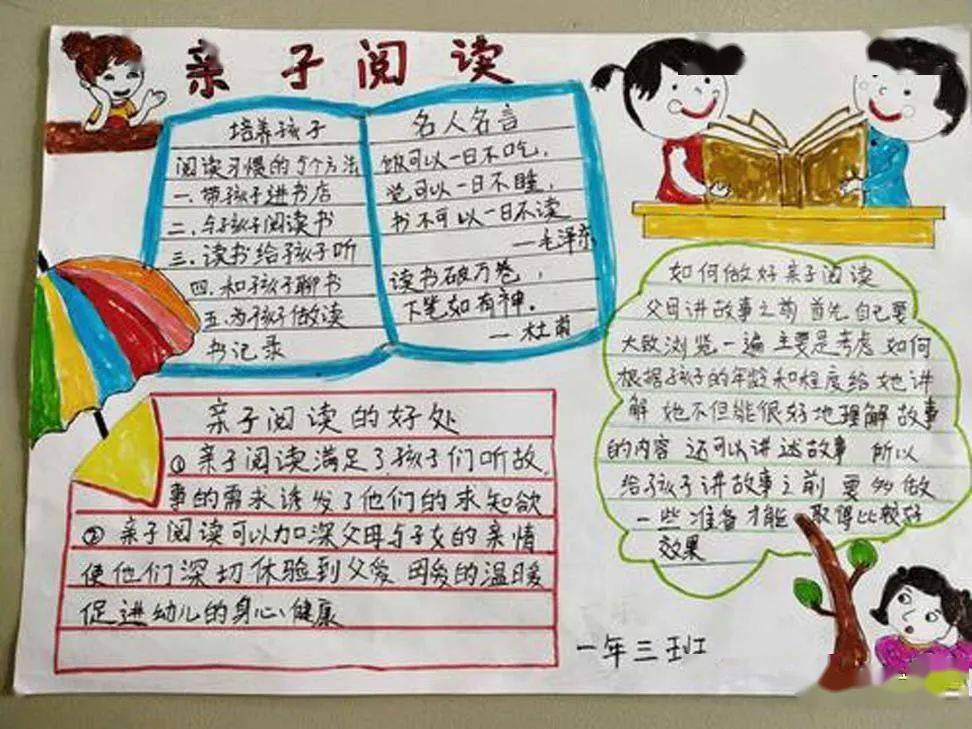 亲子阅读
培养孩子
阅读习惯的5个方法
一.带孩子进书店
二.与孩子阅读书
三.读书给孩子听
四.和孩子聊书
五.为孩子做读
书记录
名人名言
饭可以一日不吃,
觉可以一日不睡,
书不可以一日不读
—毛泽东
读书破万卷,
下笔如有神.
—杜甫
如何做好亲子阅读
父母讲故事之前 首先 自己要
大致浏览一遍 主要是考虑 如何
根据孩子的年龄和程度给她讲
解 她不但能很好地理解故事
的内容 还可以讲述故事 所以
给孩子讲故事之前 要多做
一些准备才能 取得比较好
效果
亲子阅读的好处
① 亲子阅读满足了孩子们听故
事的需求诱发了他们的求知欲
② 亲子阅读可以加深父母与子女的亲情
使他们深切体验到父爱 母爱的温暖
促进幼儿的身心健康
一年三班